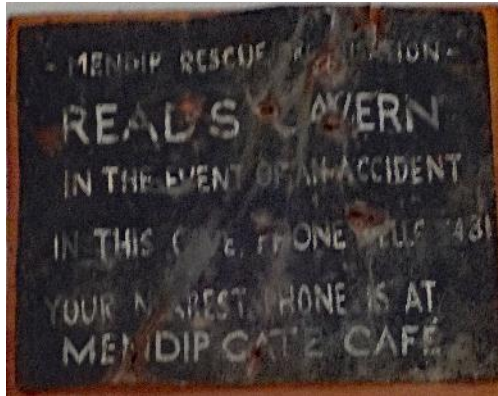 - MENDIP RESCUE ORGANISATION -
READ'S CAVERN
IN THE EVENT OF AN ACCIDENT
IN THIS CAVE, PHONE WELLS
YOUR NEAREST PHONE IS AT
MENDIP GATE CAFÉ